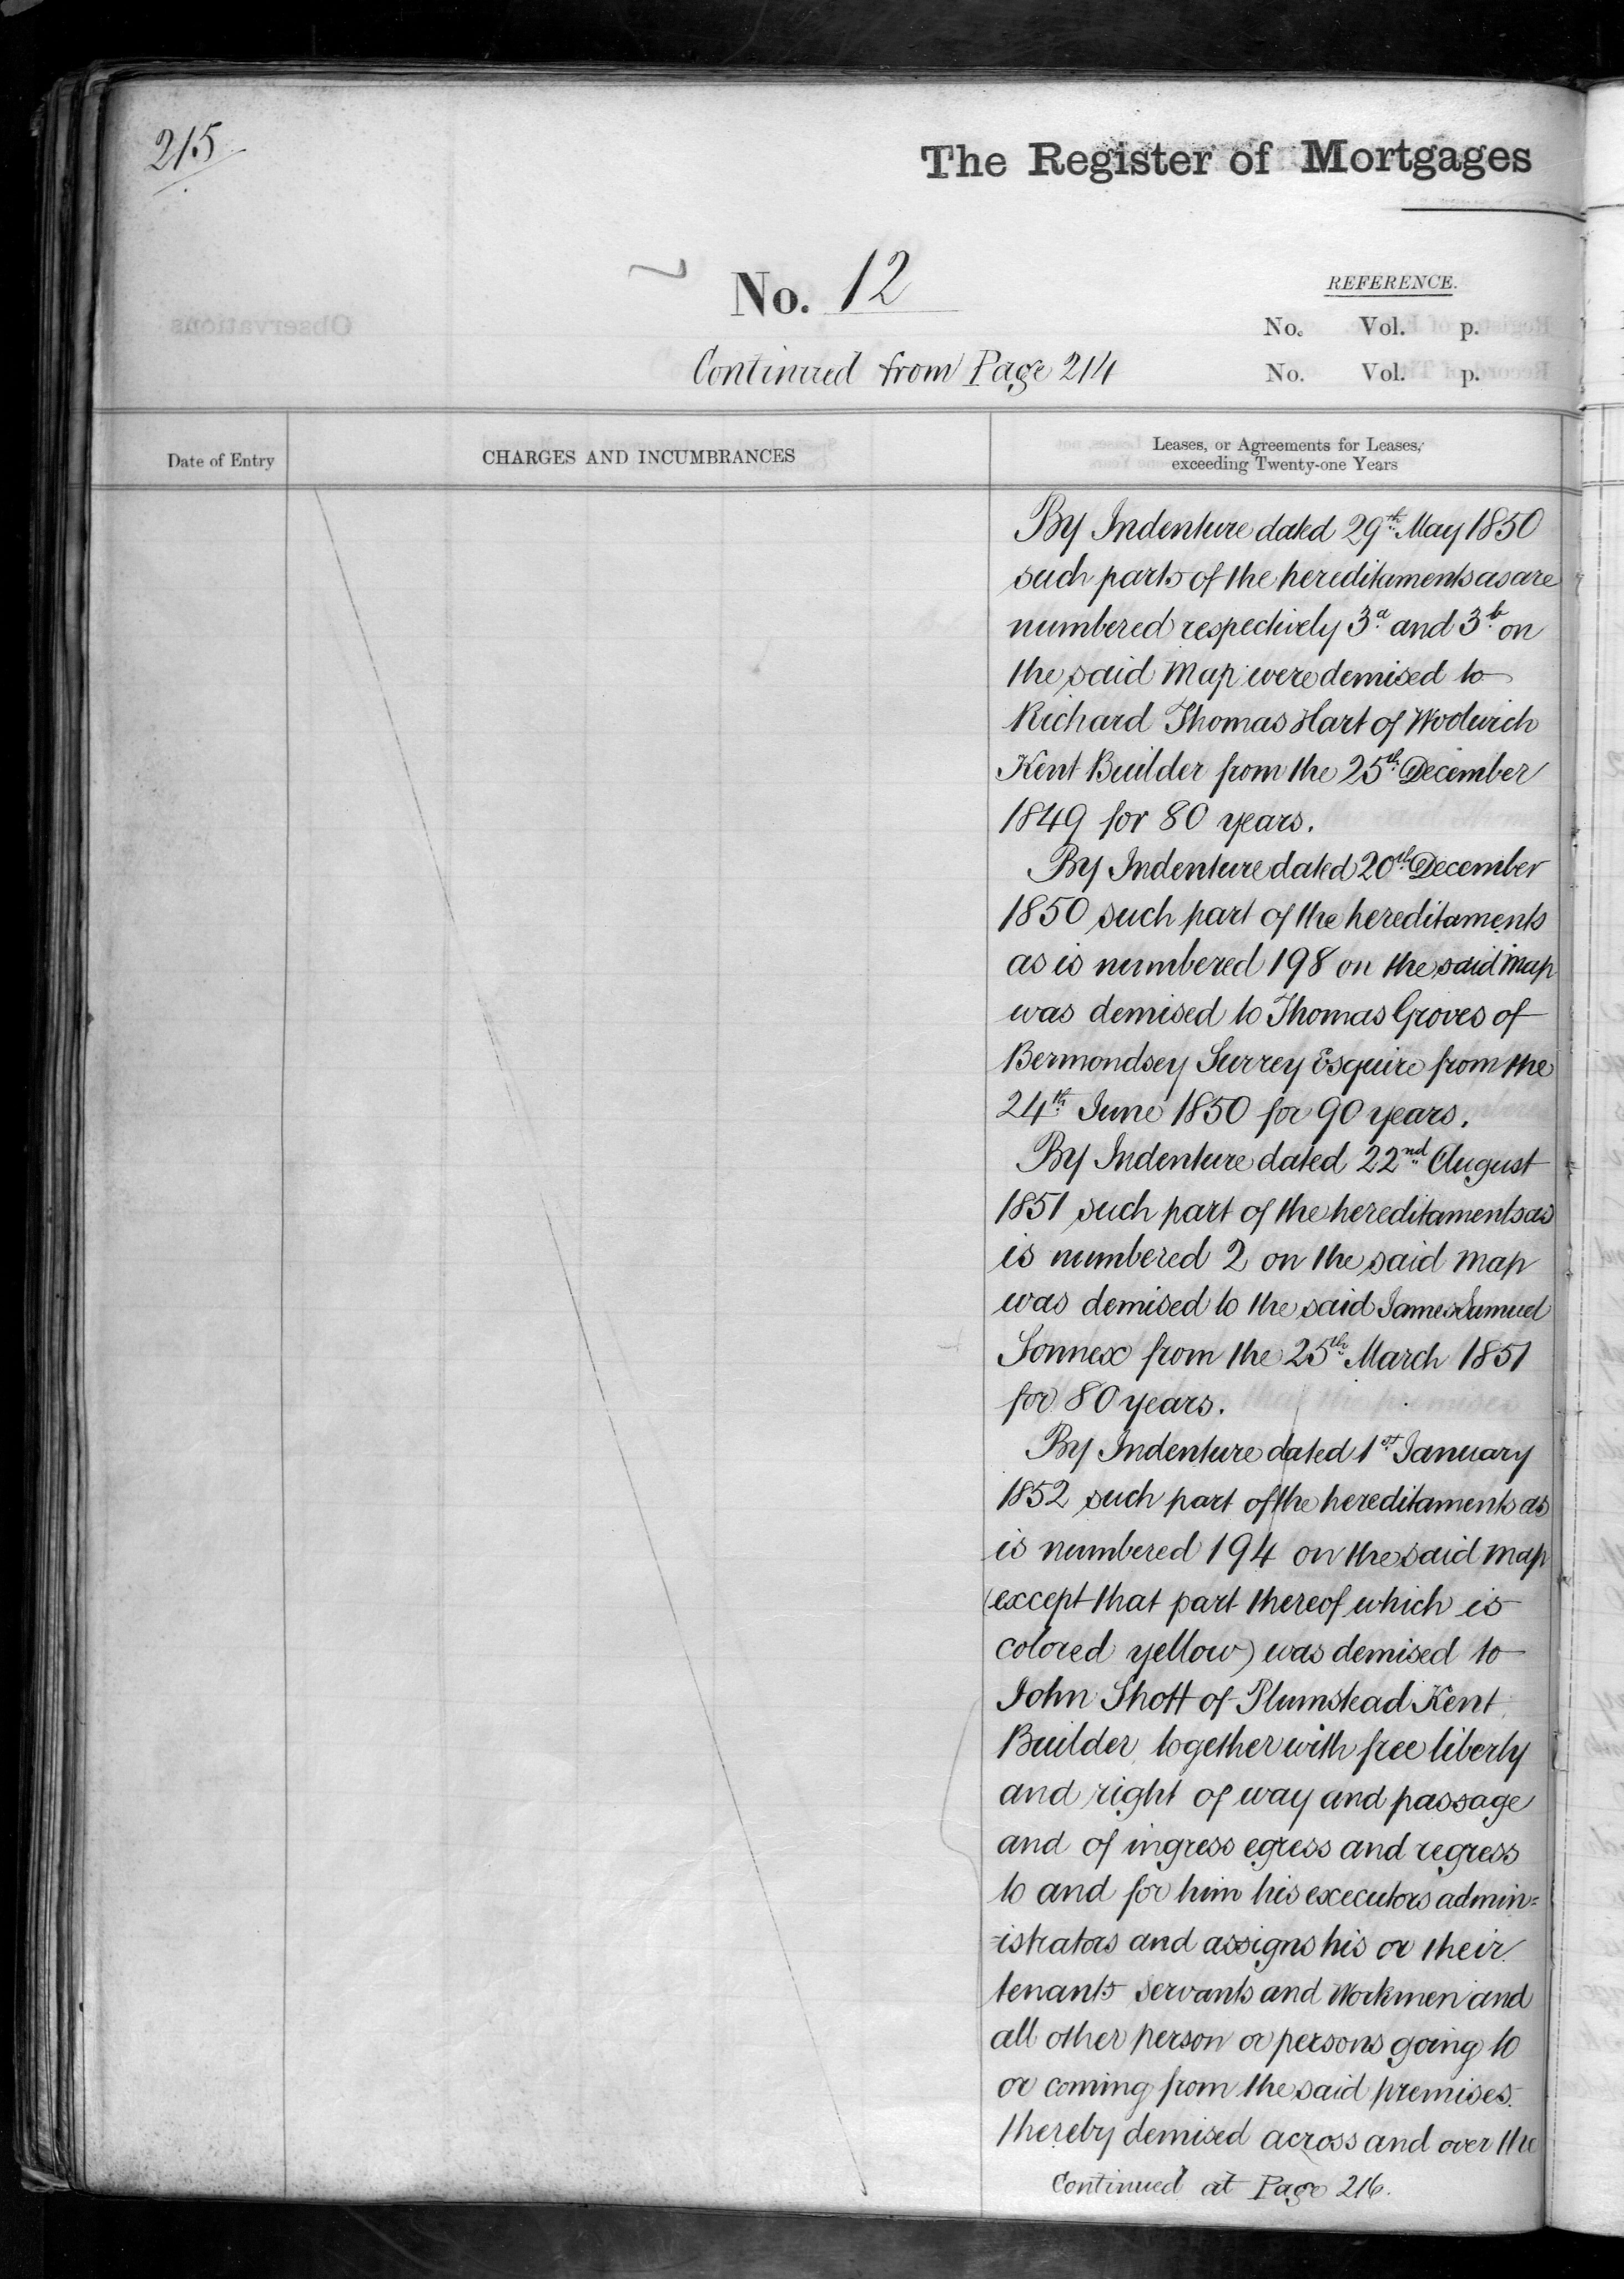 215
The Register of Mortgages
No. 12
REFERENCE.
No. Vol. p.
No. Vol. p.
Continued from Page 214
Date of Entry
CHARGES AND INCUMBRANCES
Leases, or Agreements for Leases,
exceeding Twenty-one Years
By Indenture dated 29th May 1850
such parts of the hereditaments as are
numbered respectively 3a and 3b on
the said Map were demised to
Richard Thomas Hart of Woolwich
Kent Builder from the 25th December
1849 for 80 years.
By Indenture dated 20th December
1850 such part of the hereditaments
as is numbered 198 on the said Map
was demised to Thomas Groves of
Bermondsey Surrey Esquire from the
24th June 1850 for 90 years.
By Indenture dated 22nd August
1851 such part of the hereditaments as
is numbered 2 on the said Map
was demised to the said James Samuel
Sonnex from the 25th March 1851
for 80 years.
By Indenture dated 1st January
1852 such part of the hereditaments as
is numbered 194 on the said Map
(except that part thereof which is
colored yellow) was demised to
John Shott of Plumstead Kent
Builder together with free liberty
and right of way and passage
and of ingress egress and regress
to and for him his executors admin=
=istrators and assigns his or their
tenants servants and Workmen and
all other person or persons going to
or coming from the said premises
thereby demised across and over the
Continued at Page 216.